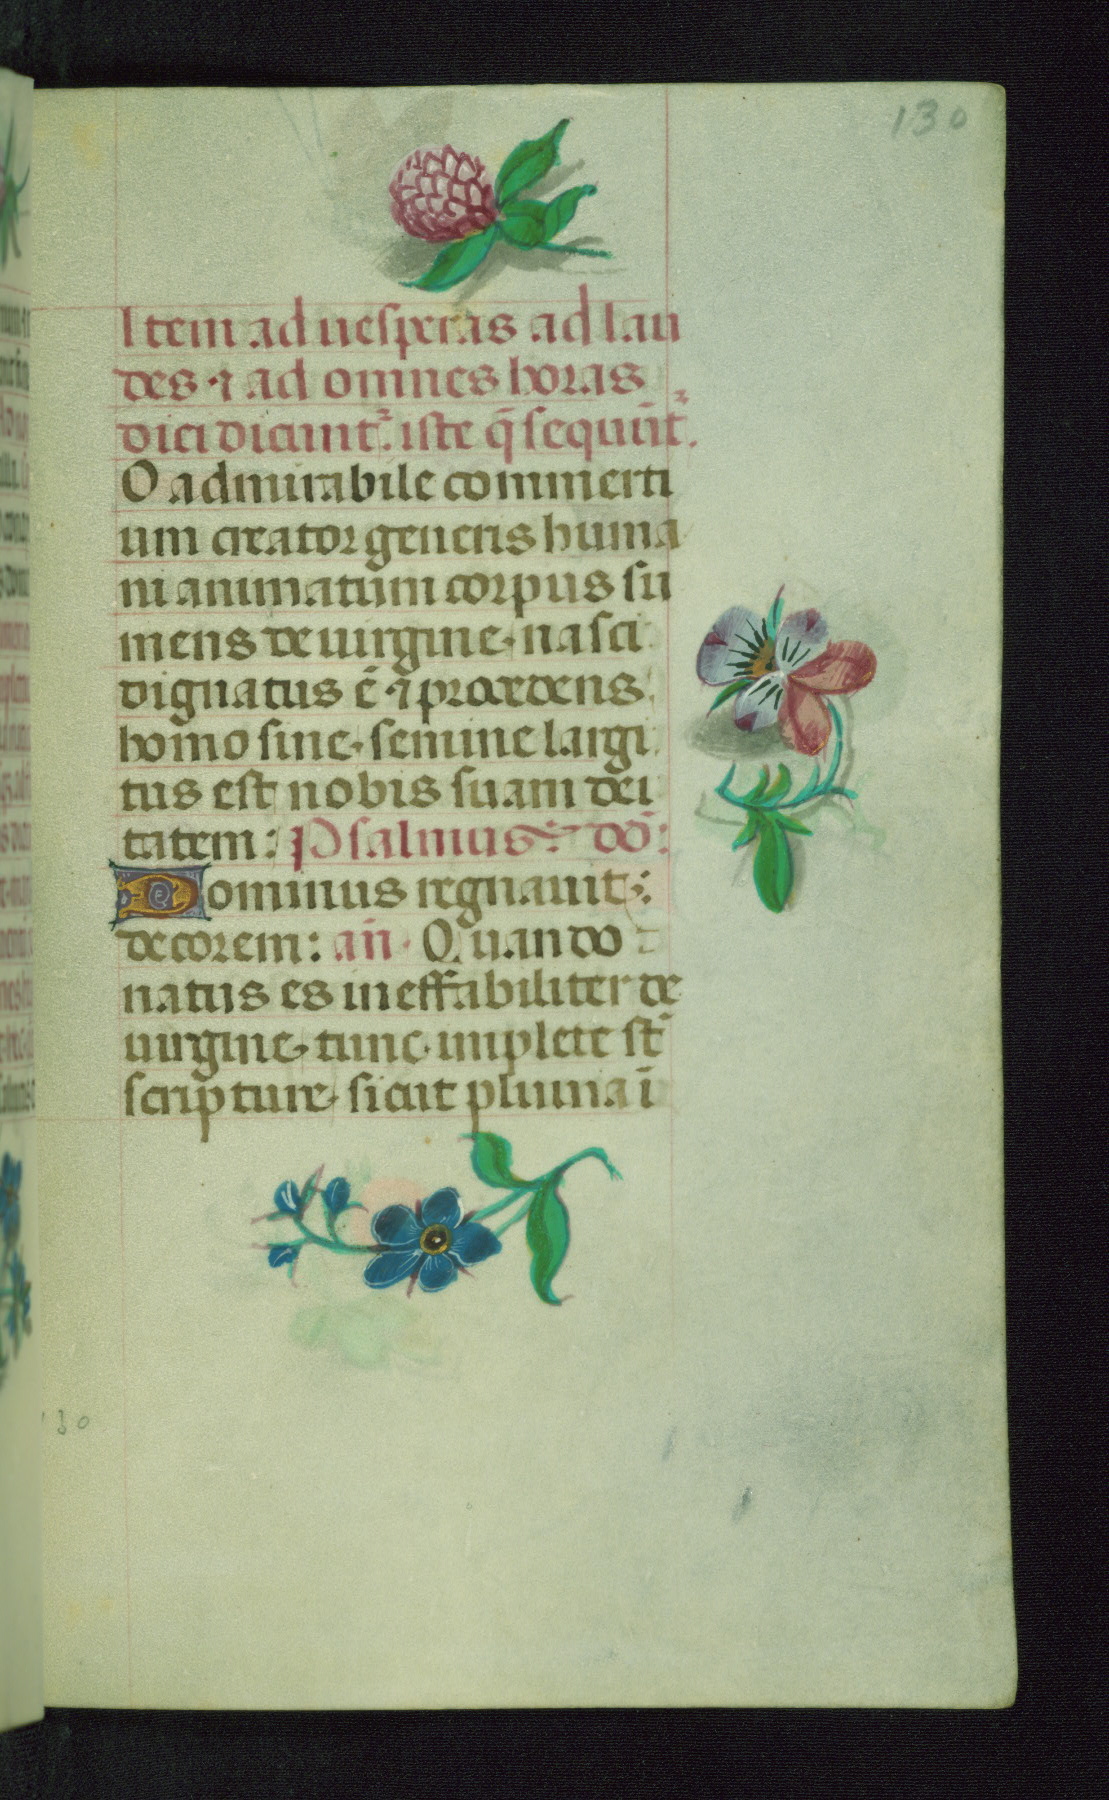 130
Item ad uesperas ad lau
des ⁊ ad omnes horas
dici dicunt᷑. iste q̄ sequūt᷑.
O admirabile commerti
um creator generis huma
ni animatum corpus su
mens de uirgine nasci
dignatus ē ⁊ procedens
homo sine semine largi
tus est nobis suam dei
tatem: Psalmus dd̄:
Dominus regnauit:
decorem: an̄ Quando
natus es ineffabiliter de
uirgine tunc implete st̄
scripture sicut pluuia ī
130